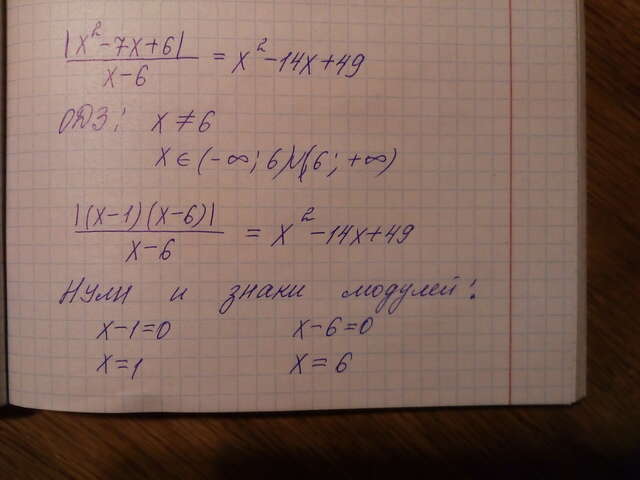 |x²-7x+6| / x-6 = x²-14x+49
ОДЗ: x ≠ 6
x ∈ (-∞; 6)∪(6; +∞)
|(x-1)(x-6)| / x-6 = x²-14x+49
Нули и знаки модулей:
x-1=0 x-6=0
x=1 x=6